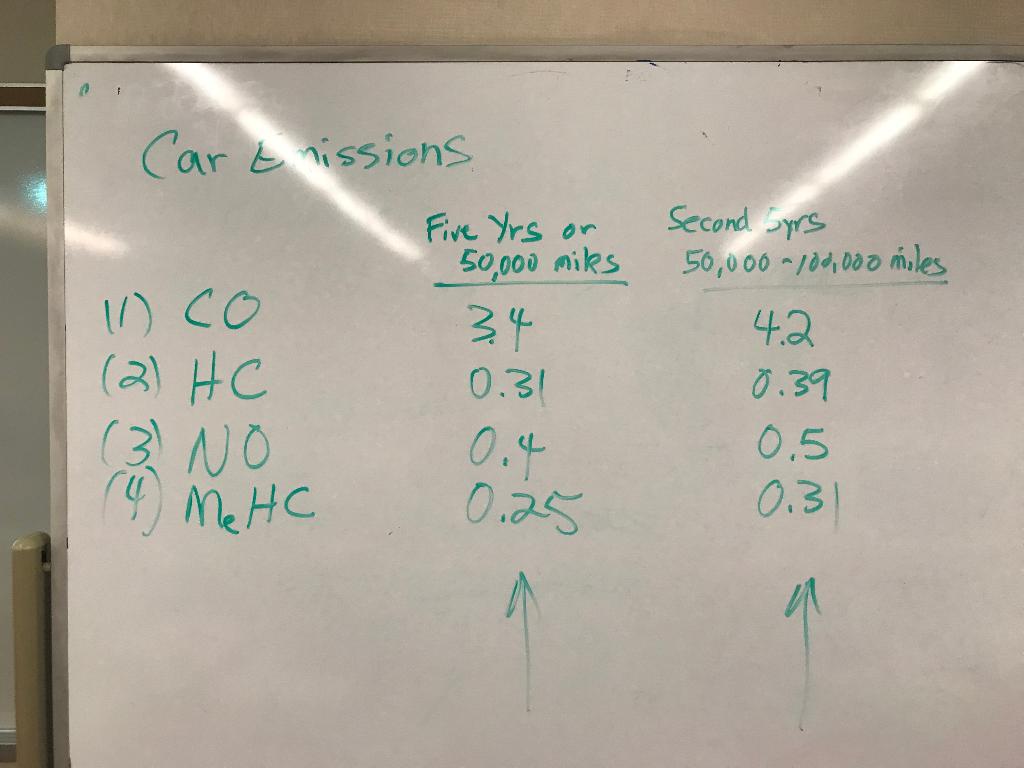 Car Emissions
Five Yrs or Second 5yrs
50,000 miles 50,000 - 100,000 miles
(1) CO 3.4 4.2
(2) HC 0.31 0.39
(3) NO 0.4 0.5
(4) MeHC 0.25 0.31